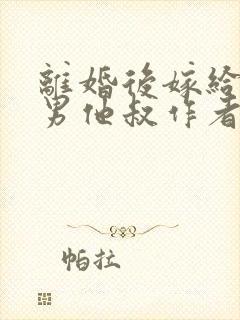 離婚後嫁給
男他叔作者
帕拉